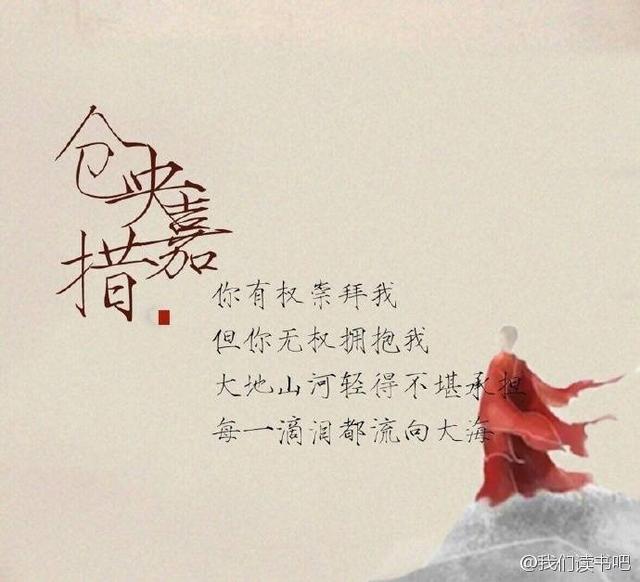 仓央嘉措
你有权崇拜我
但你无权拥抱我
大地山河轻得不堪承担
每一滴泪都流向大海
@我们读书吧